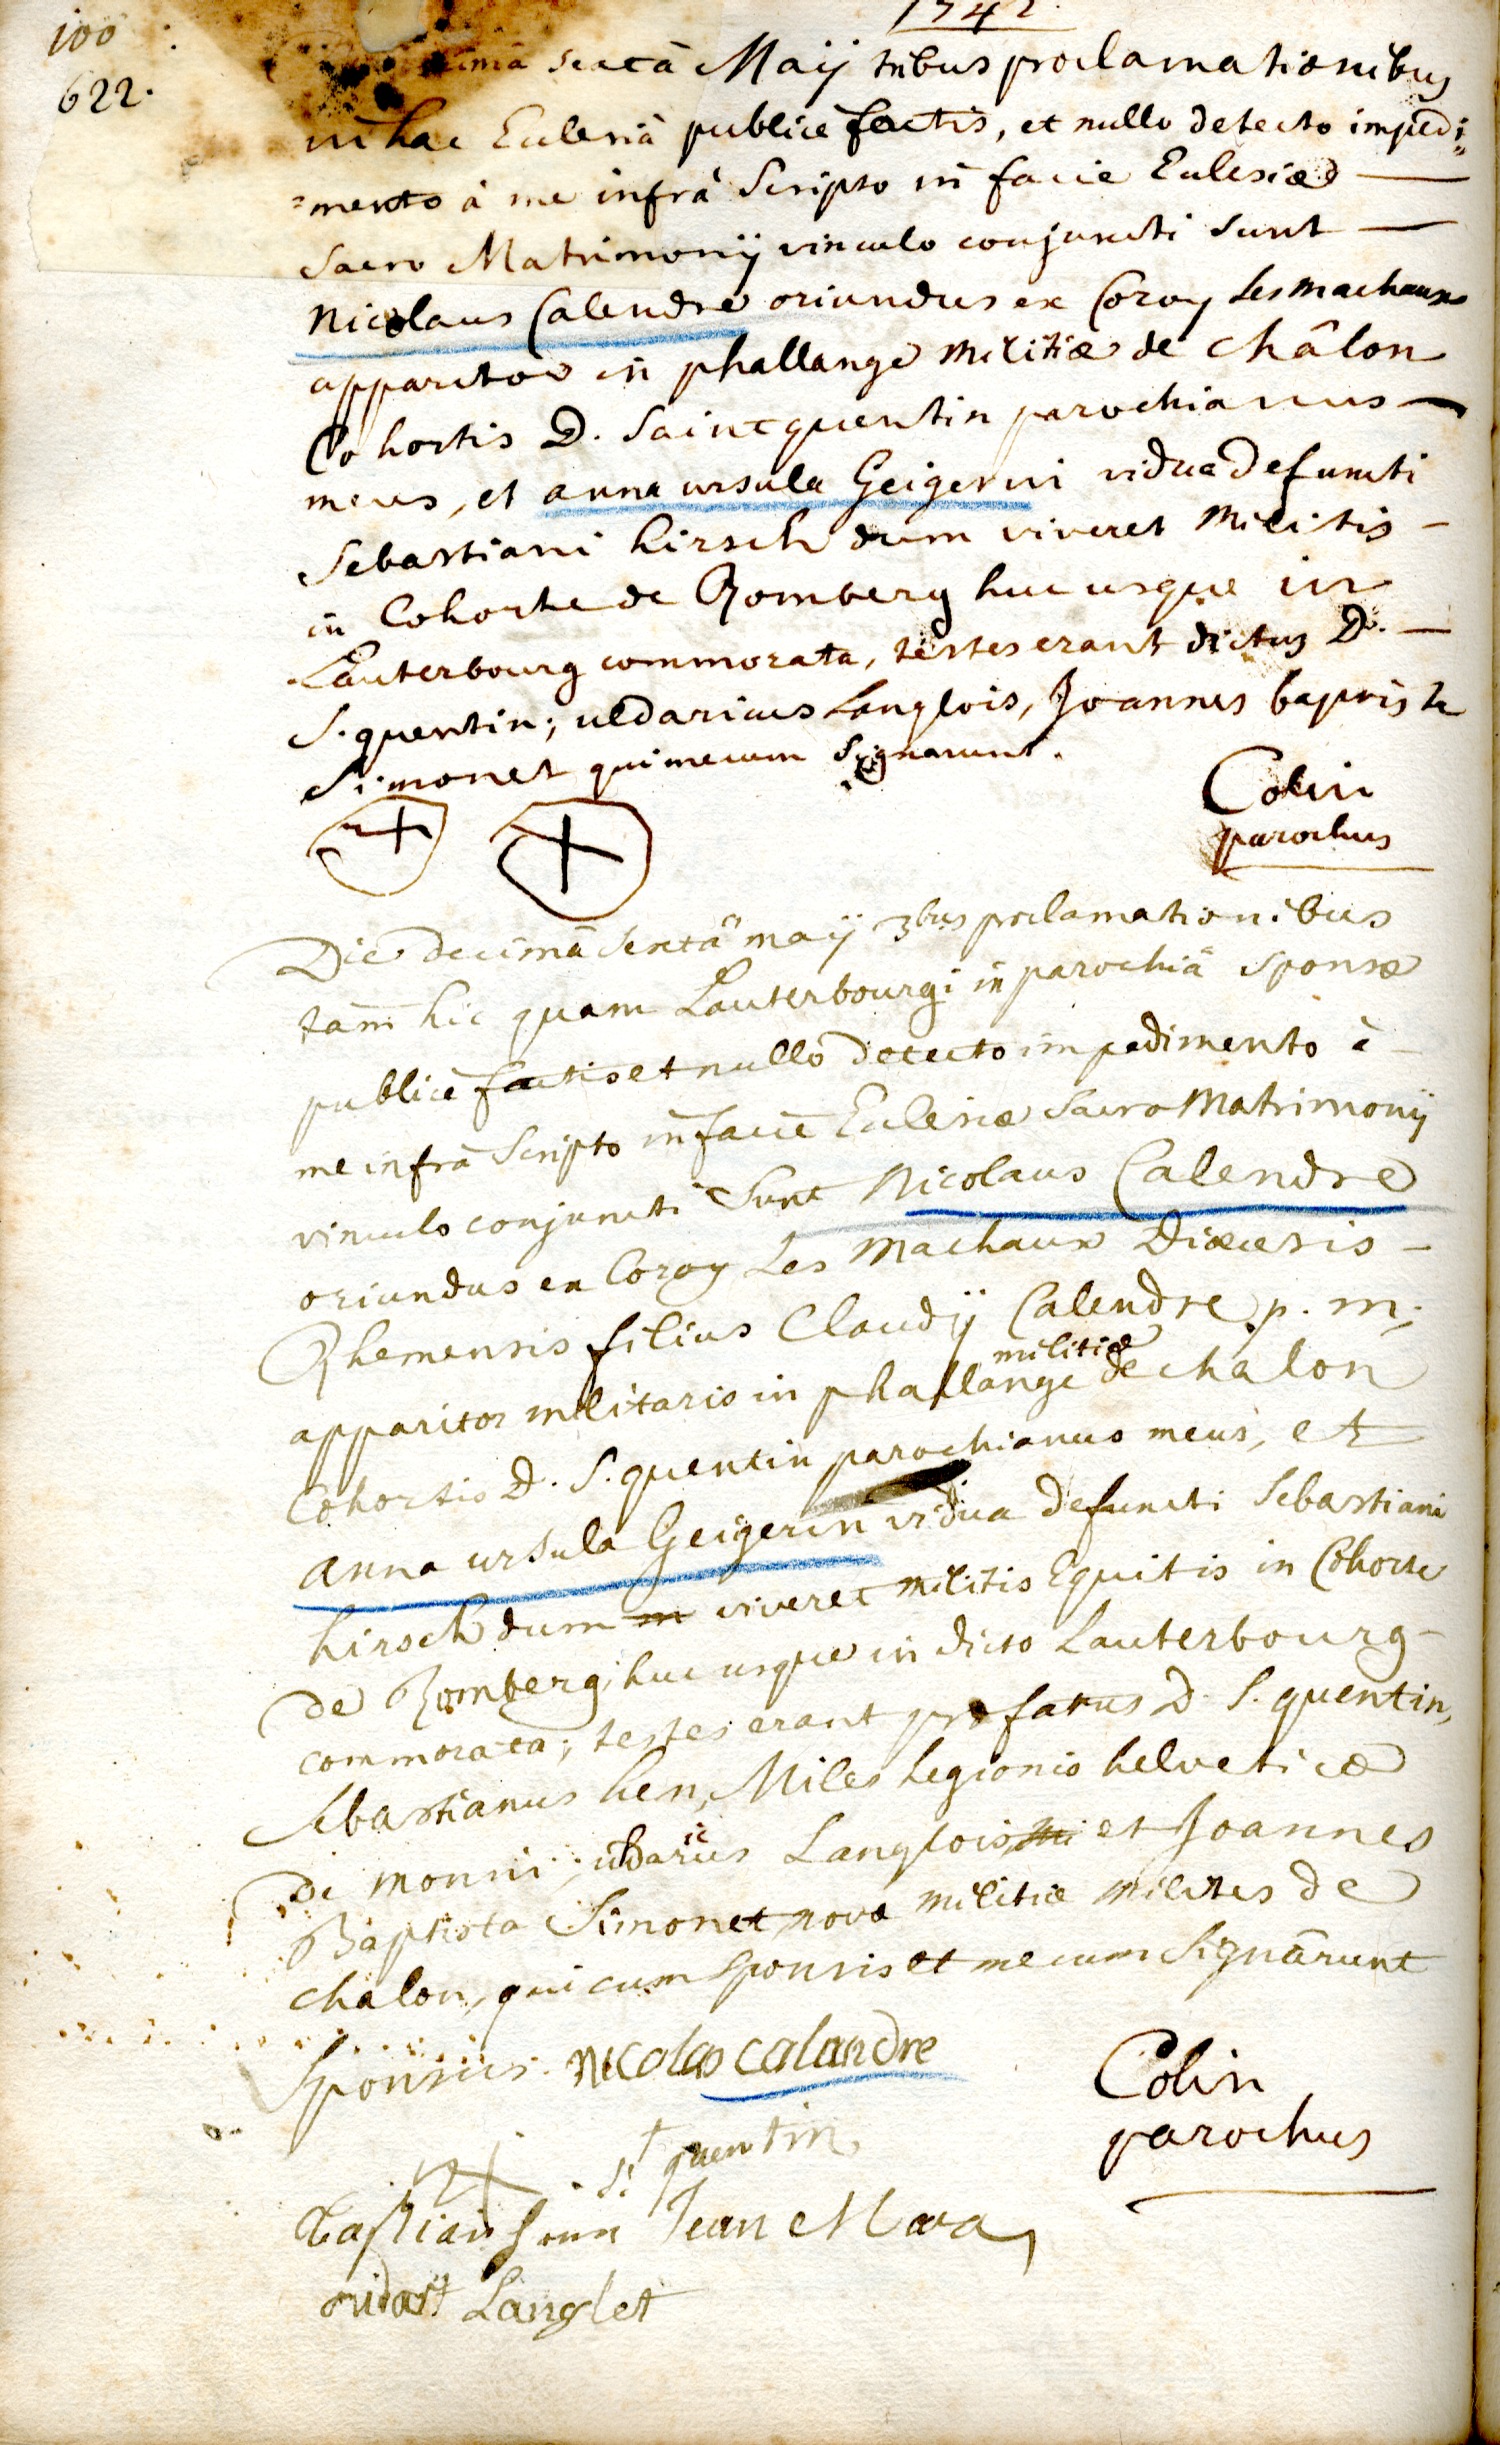 100
622.
1742.
sextâ Maij tribus proclamationibus
in hac Eclesiâ publicè factis, et nullo detecto impedi=
=mento à me infrà scripto in facie Eclesiæ
sacro Matrimonij vinculo conjuncti sunt
Nicolaus Calendre oriundus ex Coroy les machaux
apparitor in phallange militiæ de châlon
Cohortis D. saint quentin parochianus
meus, et anna ursula Geigerin vidua defuncti
Sebastiani hirsch dum viveret militis
in Cohorte de Romberg huc usque in
Lauterbourg commorata, testes erant dictus D.
S. quentin; uldaricus Langlois, Joannes baptista
Simonet qui mecum signarunt.
Colin
parochus
Die decimâ sextâ maij 3bus proclamationibus
tam hic quam Lauterbourgi in parochiâ sponsæ
publicè factis et nullo detecto impedimento à
me infrà scripto in facie Eclesiæ sacro Matrimonij
vinculo conjuncti sunt Nicolaus Calendre
oriundus ex Coroy les machaux Diæcesis
Rhemensis filius Claudij Calendre p. m.
apparitor militaris in phallange militiæ de chalon
Cohortis D. S. quentin parochianus meus, et
anna ursula Geigerin vidua defuncti Sebastiani
hirsch dum viveret militis Equitis in Cohorte
de Romberg, huc usque in dicto Lauterbourg
commorata; testes erant præfatus D. S. quentin,
Sebastianus hen, Miles legionis helveticæ
de monnin; uldaricus Langlois et Joannes
Baptista Simonet, novæ militiæ milites de
chalon, qui cum sponsis et mecum signârunt
Sponsus. Nicolas calandre
Colin
parochus
St quentin
Jean
Langlet